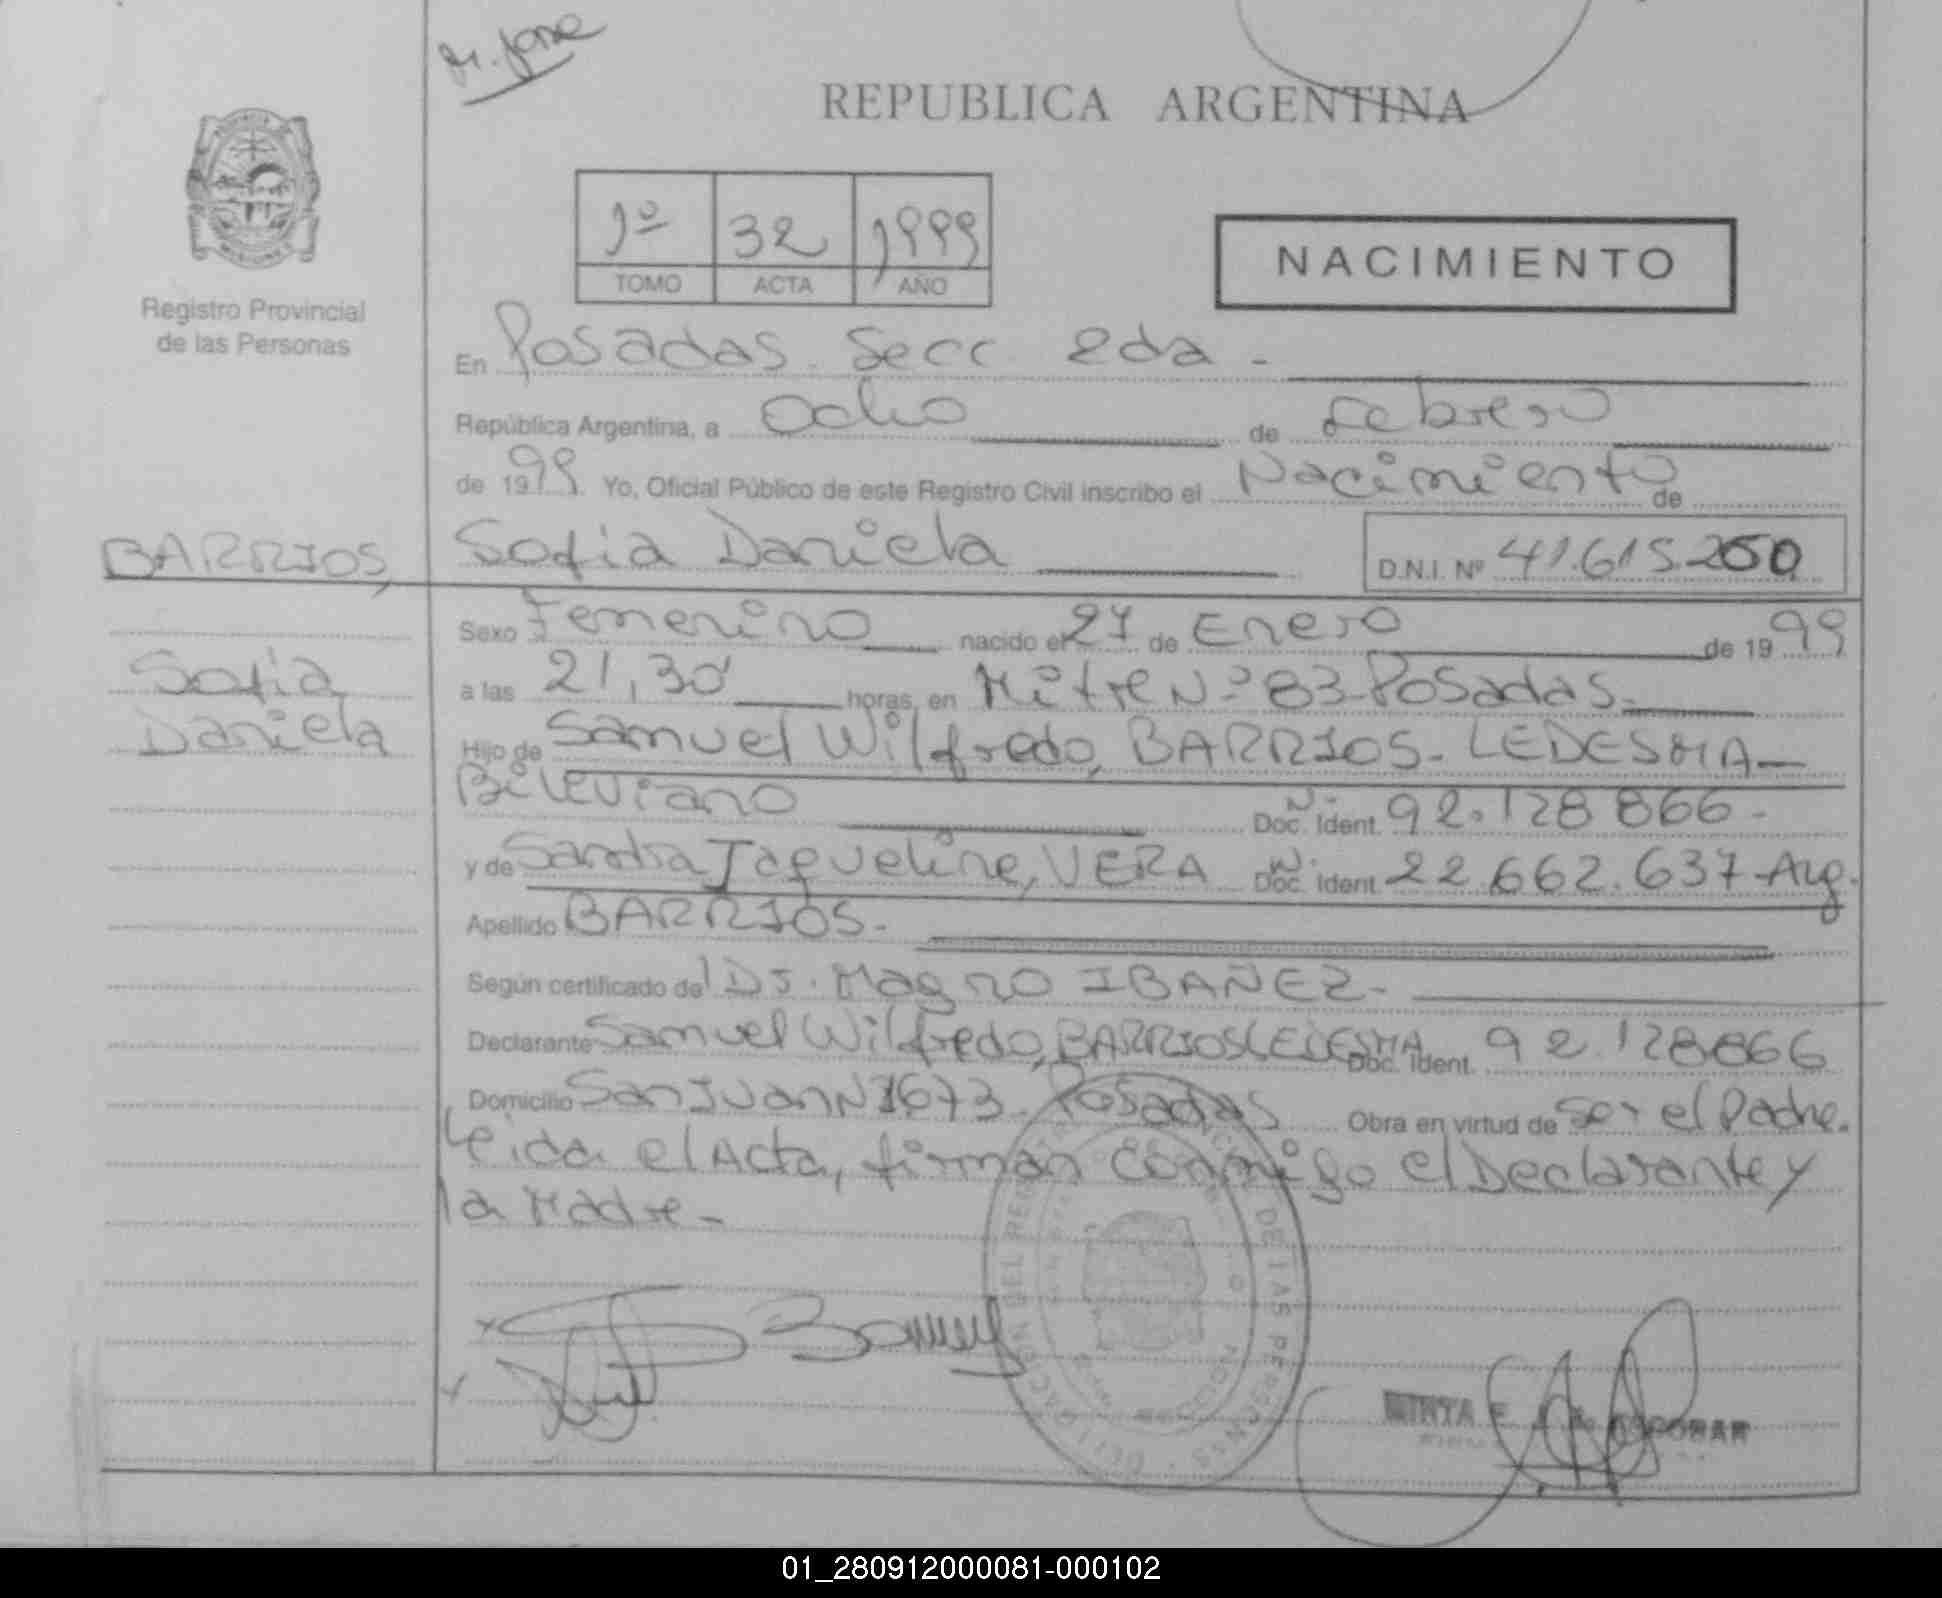 M. Jose
REPUBLICA ARGENTINA
Registro Provincial
de las Personas
1º 32 1999
TOMO ACTA AÑO
NACIMIENTO
En Posadas. Secc 2da -
República Argentina, a Ocho de Febrero
de 1999. Yo, Oficial Público de este Registro Civil inscribo el Nacimiento de
BARRIOS, Sofia Daniela D.N.I. Nº 41.615.250
Sofia
Daniela
Sexo Femenino nacido el 27 de Enero de 1999
a las 21,30' horas, en Mitre Nº 83 - Posadas.
Hijo de Samuel Wilfredo, BARRIOS - LEDESMA -
Doc. Ident. Nº 92.128 866 -
y de Sandra Jaqueline, VERA Doc. Ident. Nº 22.662.637 - Arg.
Apellido BARRIOS.
Según certificado del Dr. Magno IBAÑEZ -
Declarante Samuel Wilfredo, BARRIOS LEDESMA Doc. Ident. 92.128866
Domicilio San Juan Nº 1673. Posadas Obra en virtud de Ser el Padre.
Leida el Acta, firman conmigo el Declarante y
la Madre -
DE LAS PERSONAS
01_280912000081-000102